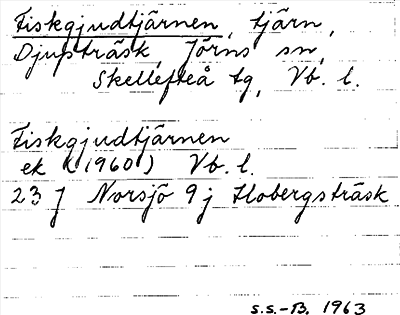 Fiskgjudtjärnen, tjärn,
Djupträsk, Jörns sn,
Skellefteå tg, Vb. l.
Fiskgjudtjärnen
ek (1960) Vb. l.
23 J Norsjö 9 j Flobergsträsk
S.S.-B. 1963